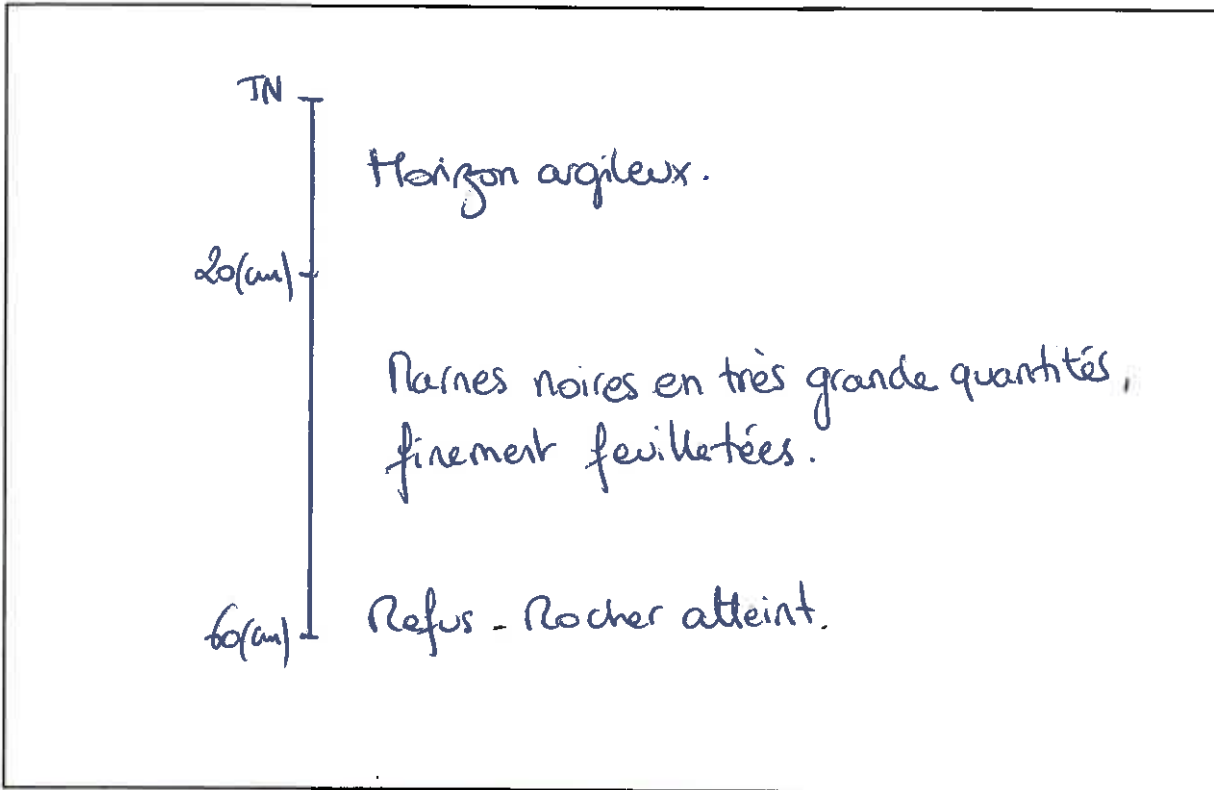 TN
Horizon argileux.
20(cm)
Marnes noires en très grande quantités,
finement feuilletées.
60(cm)
Refus - Rocher atteint.